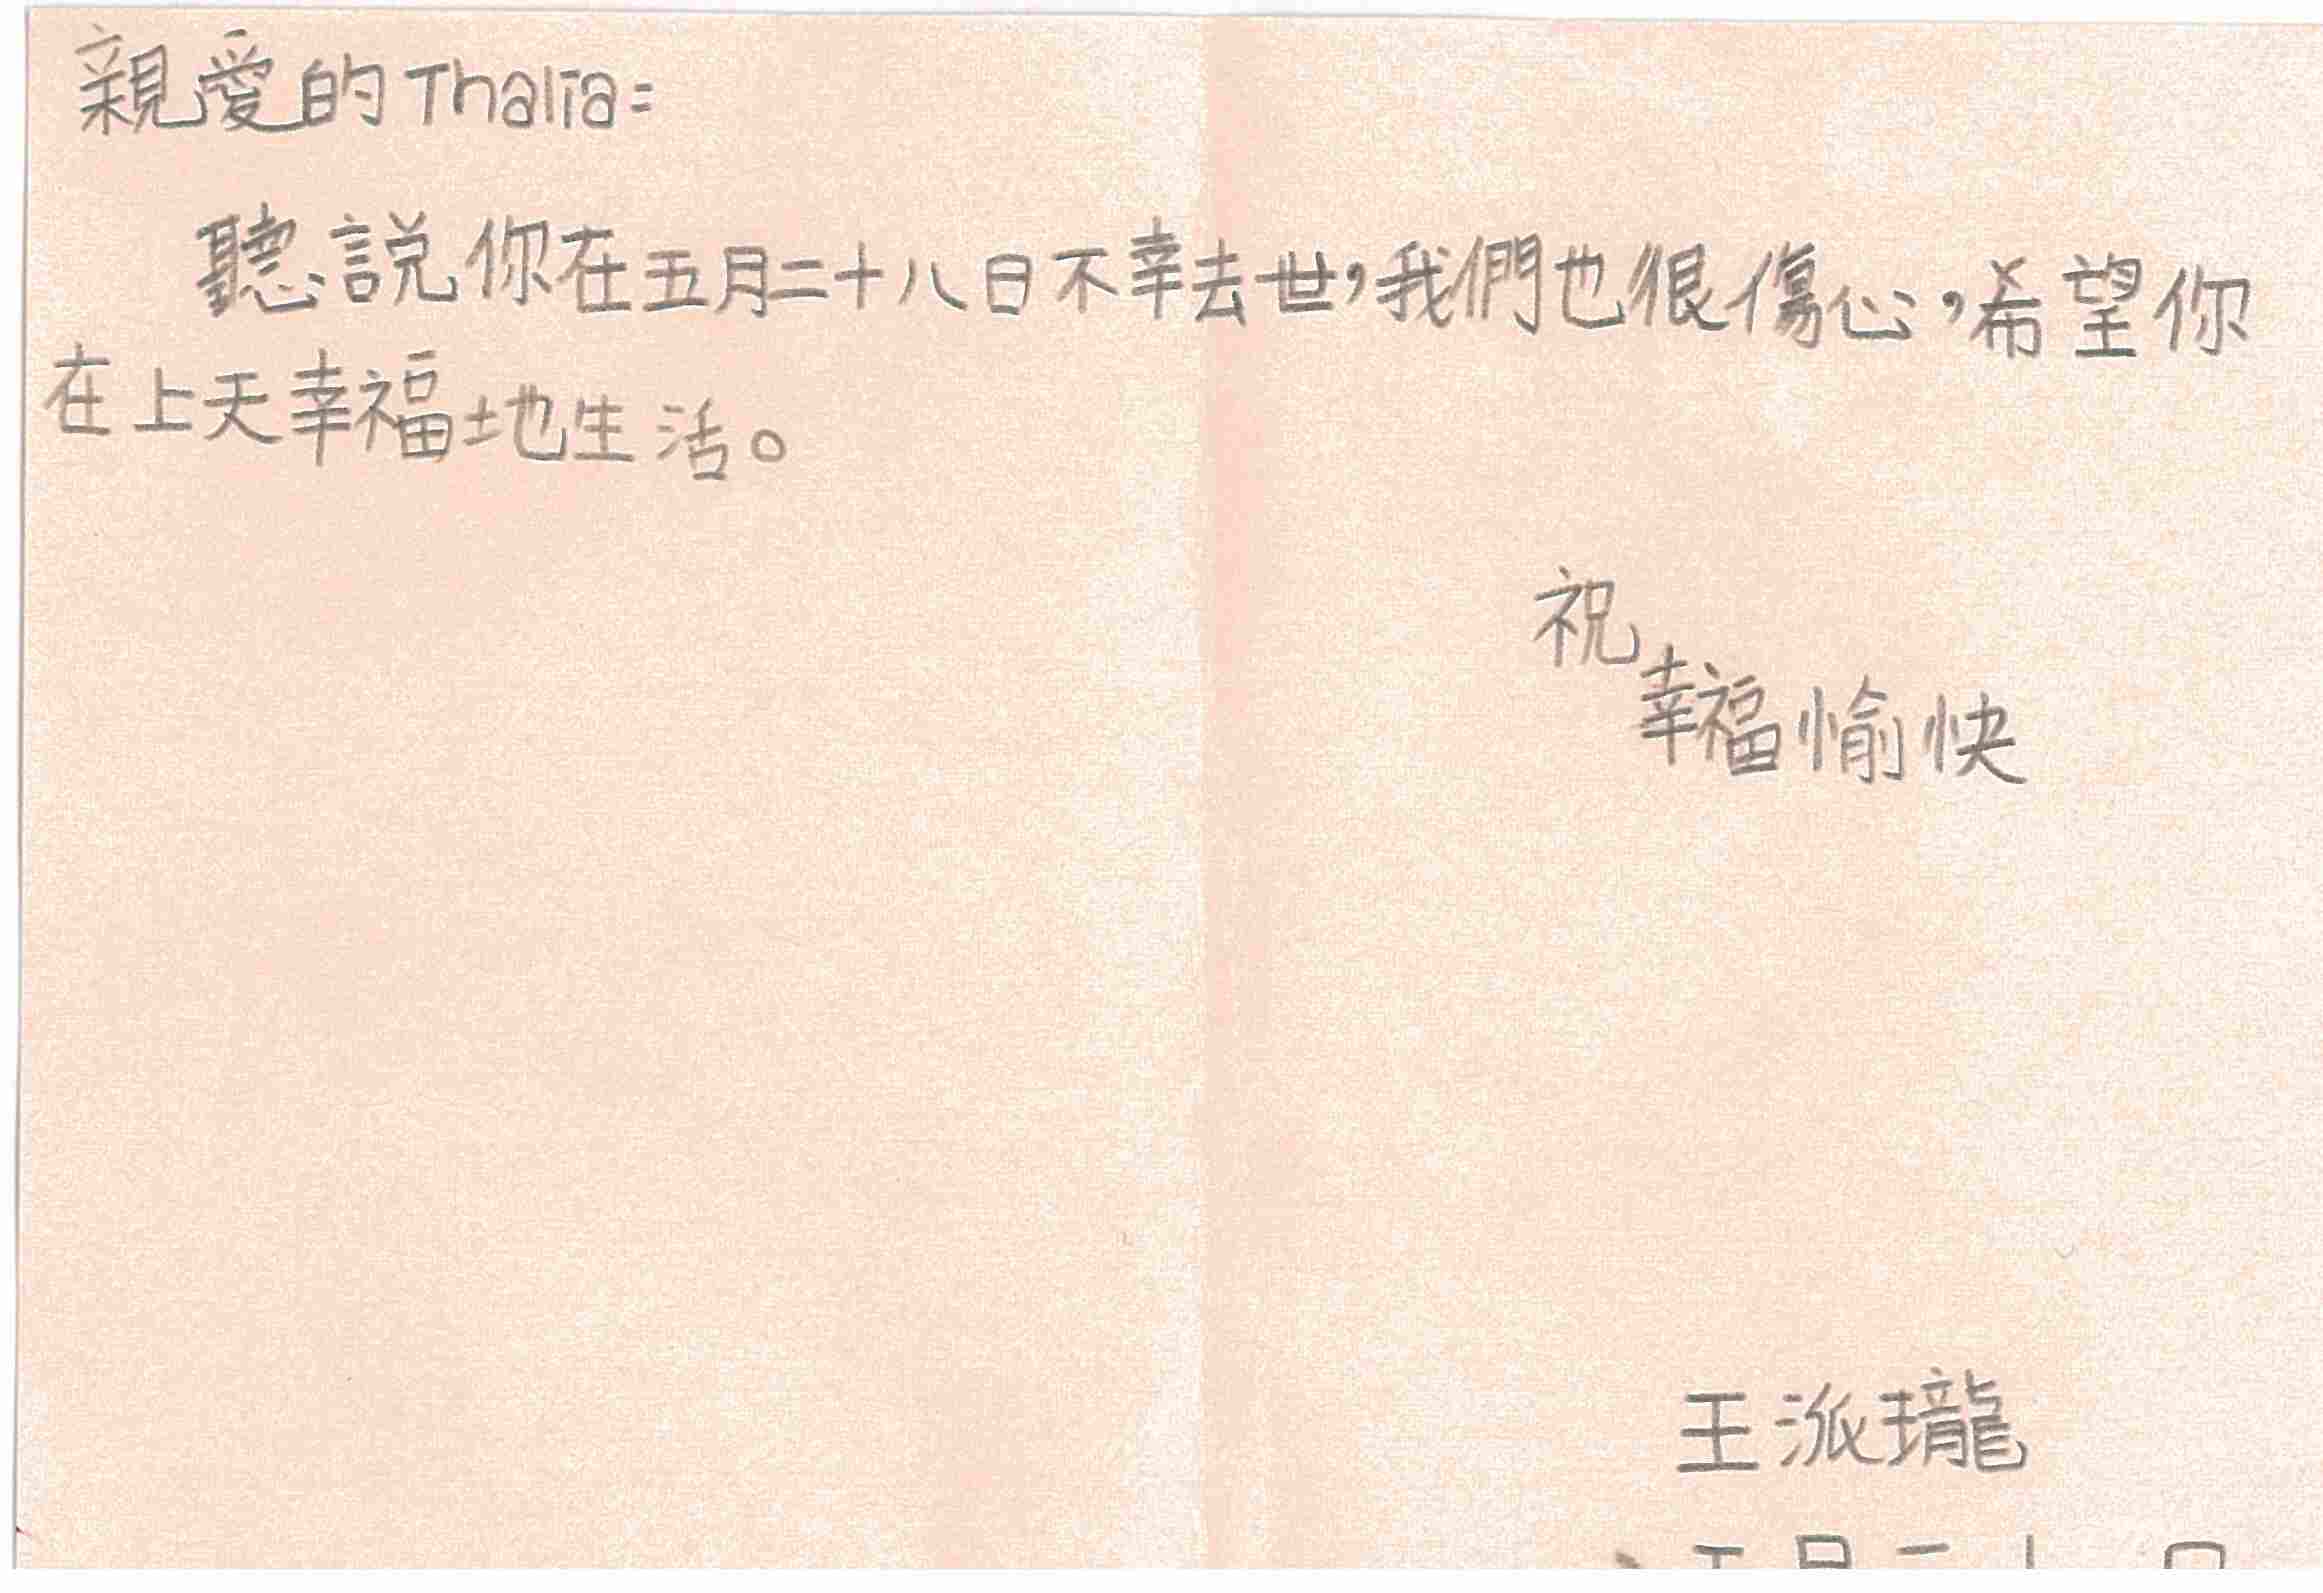 親愛的Thalia:
聽說你在五月二十八日不幸去世,我們也很傷心,希望你
在上天幸福地生活。
祝
幸福愉快
王派瓏